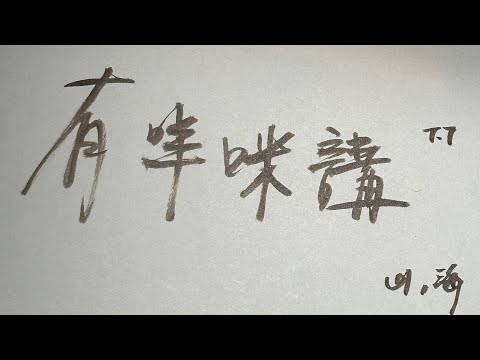 有咩咪講 T.T
山,海